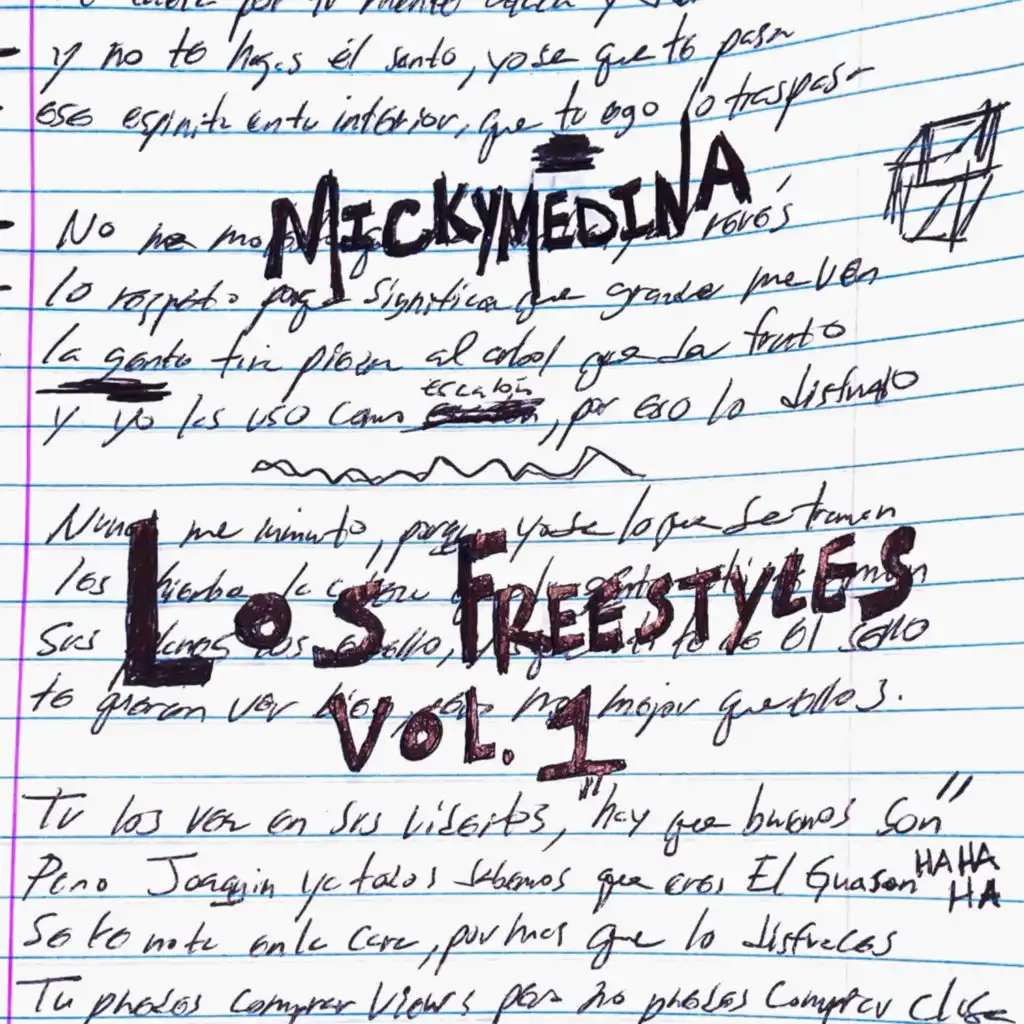 y no te hagas él santo, yo se que te pasa
ese espiritu en tu interior, que tu ego lo traspasa
MICKYMEDINA
No me revés
lo respeto porque significa que grande me ven
la gente tira piedra al arbol que da fruto
escalón
y yo las uso como , por eso lo disfruto
Nunca me inmuto, porque yo se lo que se traman
LOS FREESTYLES
los hierbe la
Sus planes de El sello
te quieren ver bien, pero no mejor que ellos.
VOL. 1
Tu los ves en sus videitos, "hay que buenos son"
Pero Joaquin ya todos sabemos que eres El Guason HA HA
HA
Se te nota en la cara, por mas que lo disfraces
Tu puedes comprar views pero no puedes comprar clase